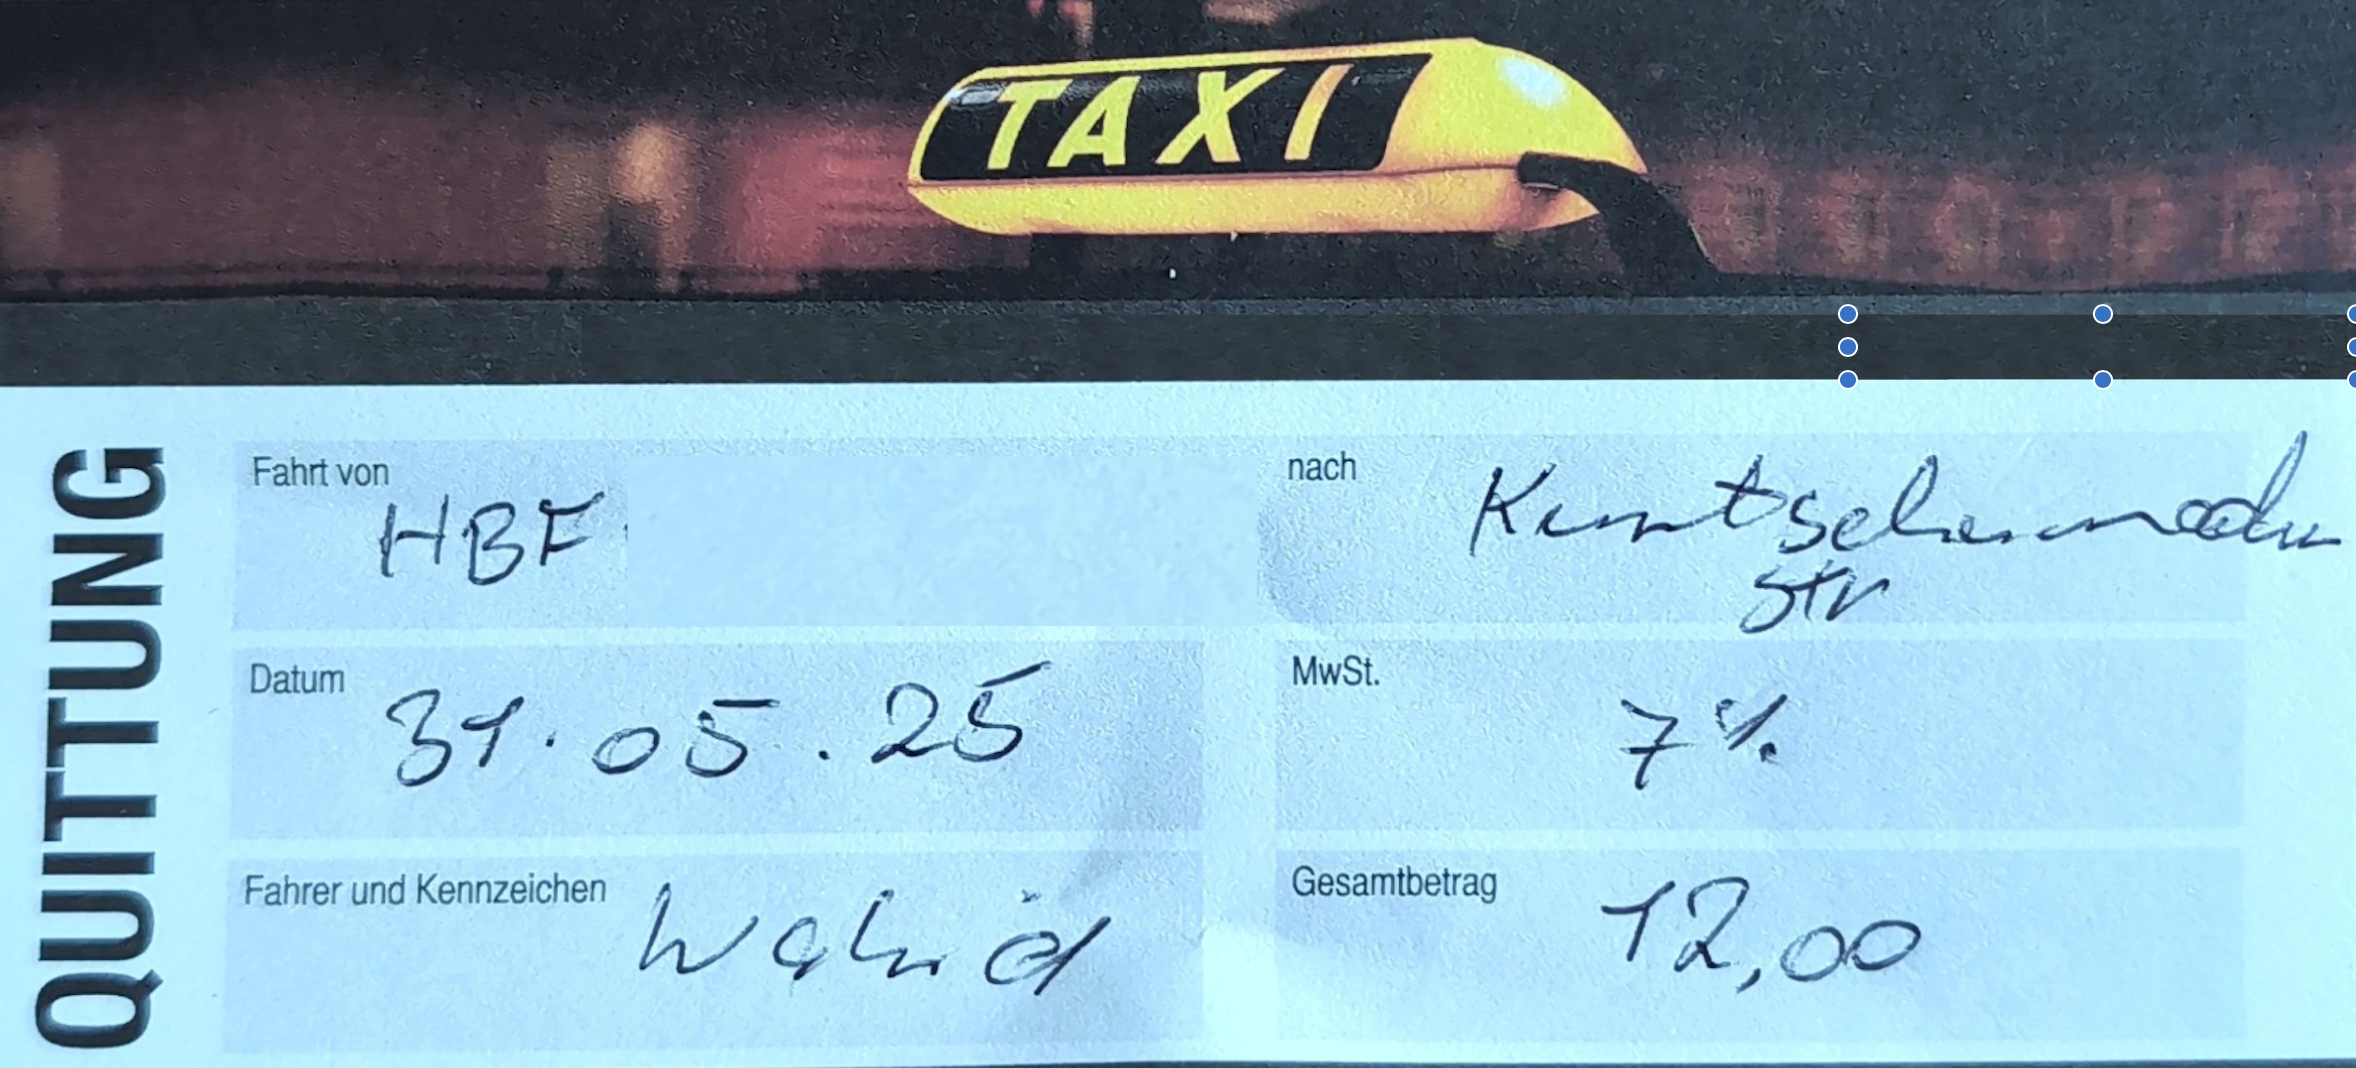 TAXI
QUITTUNG
Fahrt von
HBF
nach
str
Datum
31.05.25
MwSt.
7%
Fahrer und Kennzeichen
Wahid
Gesamtbetrag
12,00